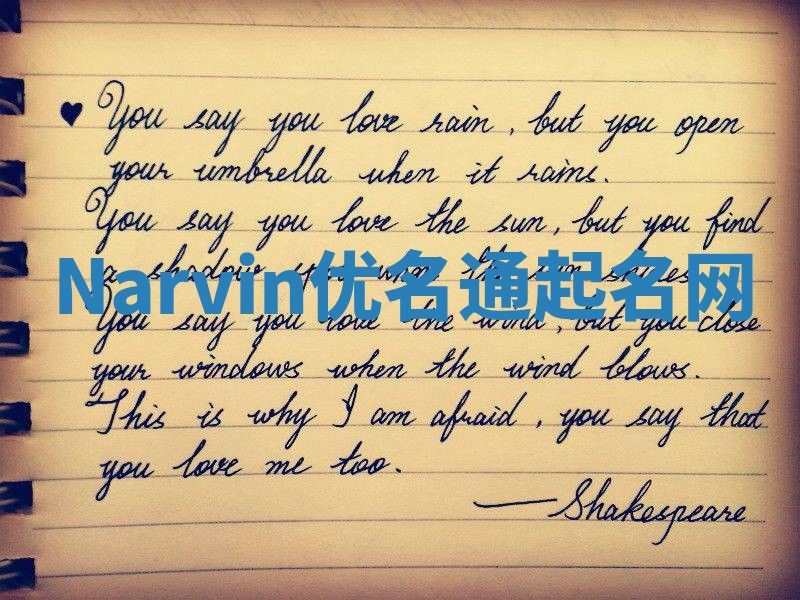 ♥ You say you love rain, but you open
your umbrella when it rains.
You say you love the sun, but you find
a shadow spot when the sun shines.
Narvin优名通起名网
You say you love the wind, but you close
your windows when the wind blows.
This is why I am afraid, you say that
you love me too.
—Shakespeare